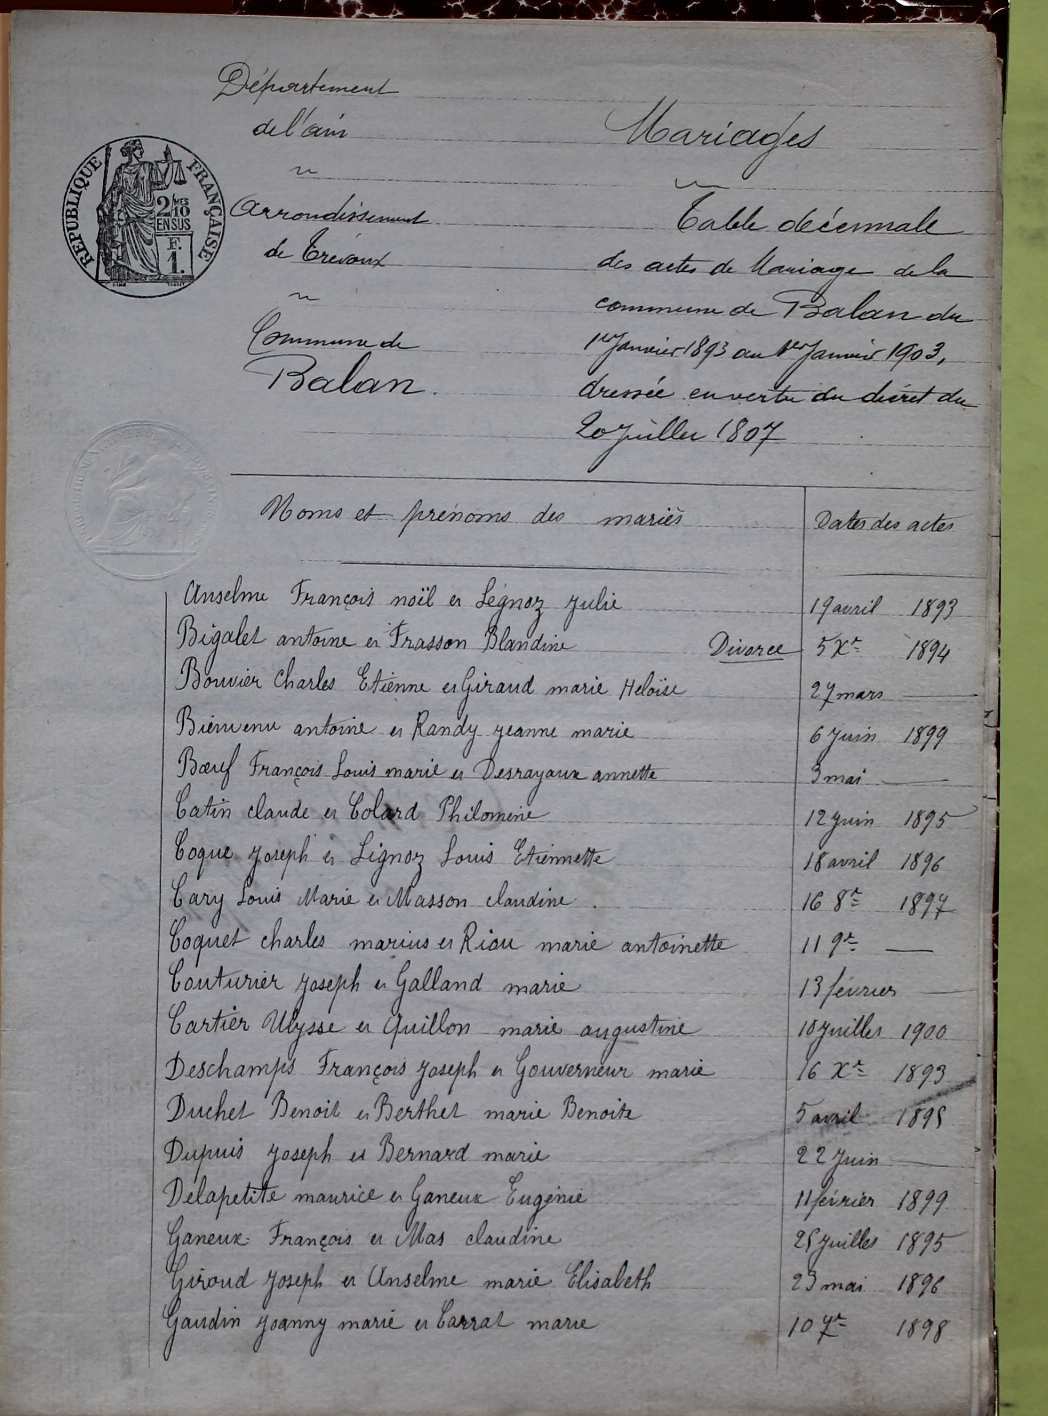 Département
de l'ain
Arrondissement
de Trévoux
Commune de
Balan.
RÉPUBLIQUE FRANÇAISE
2/10 EN SUS
F.
1.
Mariages
Table décennale
des actes de Mariage de la
commune de Balan du
1er Janvier 1893 au 1er Janvier 1903,
dressée en vertu du décret du
20 juillet 1807
Noms et prénoms des mariés Dates des actes
Anselme François noël et Légnoz Julie 19 avril 1893
Bigalet antoine et Frasson Blandine Divorce 5 Xre 1894
Bouvier Charles Etienne et Giraud marie Heloïse 27 mars —
Bienvenu antoine et Randy jeanne marie 6 juin 1899
Bœuf François Louis marie et Desrayaux annette 3 mai —
Catin claude et Colard Philomène 12 juin 1895
Coque Joseph et Lignoz Louis Etiennette 18 avril 1896
Cary Louis Marie et Masson claudine 16 8re 1897
Coquet charles marius et Riou marie antoinette 11 9re —
Couturier Joseph et Galland marie 13 février —
Cartier Ulysse et Quillon marie augustine 10 juillet 1900
Deschamps François Joseph et Gouverneur marie 16 Xre 1893
Duchet Benoit et Berthet marie Benoite 5 avril 1898
Dupuis Joseph et Bernard marie 22 Juin —
Delapetite maurice et Ganeux Eugénie 11 février 1899
Ganeux François et Mas claudine 25 juillet 1895
Giroud Joseph et Anselme marie Elisabeth 23 mai 1896
Gaudin Joanny marie et Carrat marie 10 7re 1898